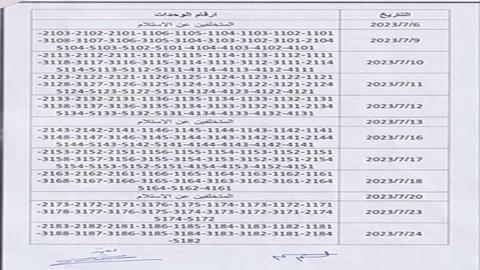 التاريخ ارقام الوحدات
2023/7/6 المتخلفين عن الاستلام
2023/7/9 -2103-2102-2101-1106-1105-1104-1103-1102-1101
-3108-3107-3106-3105-3104-3103-3102-3101-2104
5104-5103-5102-5101-4104-4103-4102-4101
2023/7/10 -2113-2112-2111-1116-1115-1114-1113-1112-1111
-3118-3117-3116-3115-3114-3113-3112-3111-2114
5114-5113-5112-5111-4114-4113-4112-4111
2023/7/11 -2123-2122-2121-1126-1125-1124-1123-1122-1121
-3128-3127-3126-3125-3124-3123-3122-3121-2124
5124-5123-5122-5121-4124-4123-4122-4121
2023/7/12 -2133-2132-2131-1136-1135-1134-1133-1132-1131
-3138-3137-3136-3135-3134-3133-3132-3131-2134
5134-5133-5132-5131-4134-4133-4132-4131
2023/7/13 المتخلفين عن الاستلام
2023/7/16 -2143-2142-2141-1146-1145-1144-1143-1142-1141
-3148-3147-3146-3145-3144-3143-3142-3141-2144
5144-5143-5142-5141-4144-4143-4142-4141
2023/7/17 -2153-2152-2151-1156-1155-1154-1153-1152-1151
-3158-3157-3156-3155-3154-3153-3152-3151-2154
5154-5153-5152-5151-4154-4153-4152-4151
2023/7/18 -2163-2162-2161-1166-1165-1164-1163-1162-1161
-3168-3167-3166-3165-3164-3163-3162-3161-2164
5164-5162-4161
2023/7/20 المتخلفين عن الاستلام
2023/7/23 -2173-2172-2171-1176-1175-1174-1173-1172-1171
-3178-3177-3176-3175-3174-3173-3172-3171-2174
-5174-5172
2023/7/24 -2183-2182-2181-1186-1185-1184-1183-1182-1181
-3188-3187-3186-3185-3184-3183-3182-3181-2184
-5182